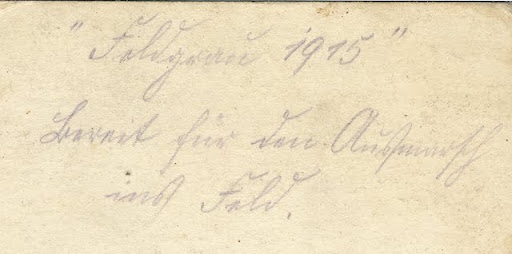 "Feldgrau 1915"
Bereit für den Ausmarsch
ins Feld.